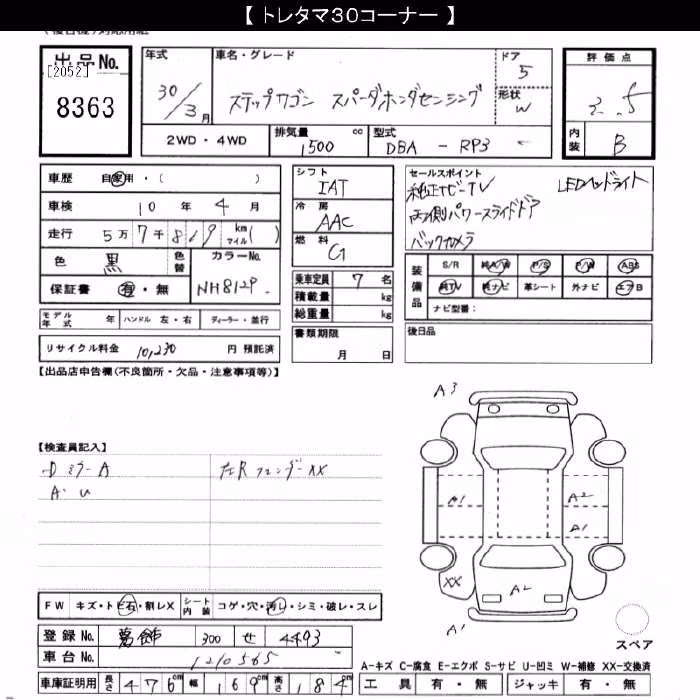 【 トレタマ30コーナー 】
出品No. [2052] 8363
年式 30/3月
車名・グレード ステップワゴン スパーダホンダセンシング
ドア 5
形状 W
評価点 3.5
内装 B
2WD・4WD
排気量 1500 cc
型式 DBA - RP3
車歴 自家用・( )
車検 10年 4月
走行 5万7千819 km マイル( )
色 黒 色替
カラーNo. NH812P
保証書 有・無
モデル年式 年 ハンドル 左・右 ディーラー・並行
リサイクル料金 10,230 円 預託済
シフト IAT
冷房 AAC
燃料 G
乗車定員 7 名
積載量 kg
総重量 kg
書類期限 月 日
セールスポイント
純正ナビ-TV LEDヘッドライト
両側パワースライドドア
バックカメラ
装備品 S/R 純A/W P/S P/W ABS
純TV 純ナビ 革シート 外ナビ エアB
ナビ型番:
後日品
【出品店申告欄(不良箇所・欠品・注意事項等)】
【検査員記入】
Dミラー A 左Rフェンダー XX
A・U
A3
A1 A2
A1
XX A2
A1
FW キズ・トビ石・割レX シート内装 コゲ・穴・汚レ・シミ・破レ・スレ
登録No. 葛飾 300 せ 4493
車台No. 1210565
車庫証明用 長さ 476cm 幅 169cm 高さ 184cm
スペア
A-キズ C-腐食 E-エクボ S-サビ U-凹ミ W-補修 XX-交換済
工具 有・無 ジャッキ 有・無